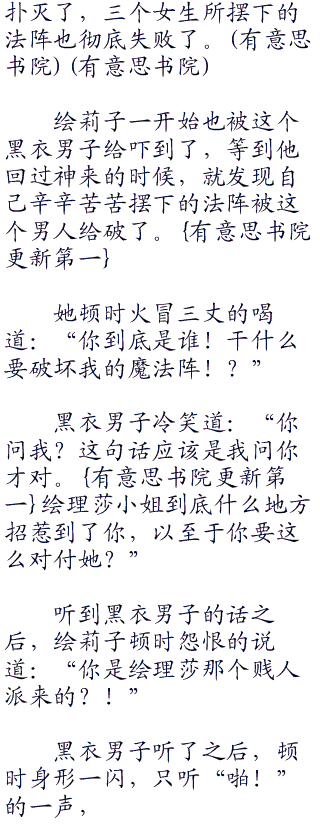 扑灭了，三个女生所摆下的
法阵也彻底失败了。(有意思
书院) (有意思书院)
绘莉子一开始也被这个
黑衣男子给吓到了，等到他
回过神来的时候，就发现自
己辛辛苦苦摆下的法阵被这
个男人给破了。{有意思书院
更新第一}
她顿时火冒三丈的喝
道：“你到底是谁！干什么
要破坏我的魔法阵！？”
黑衣男子冷笑道：“你
问我？这句话应该是我问你
才对。{有意思书院更新第
一}绘理莎小姐到底什么地方
招惹到了你，以至于你要这
么对付她？”
听到黑衣男子的话之
后，绘莉子顿时怨恨的说
道：“你是绘理莎那个贱人
派来的？！”
黑衣男子听了之后，顿
时身形一闪，只听“啪！”
的一声，